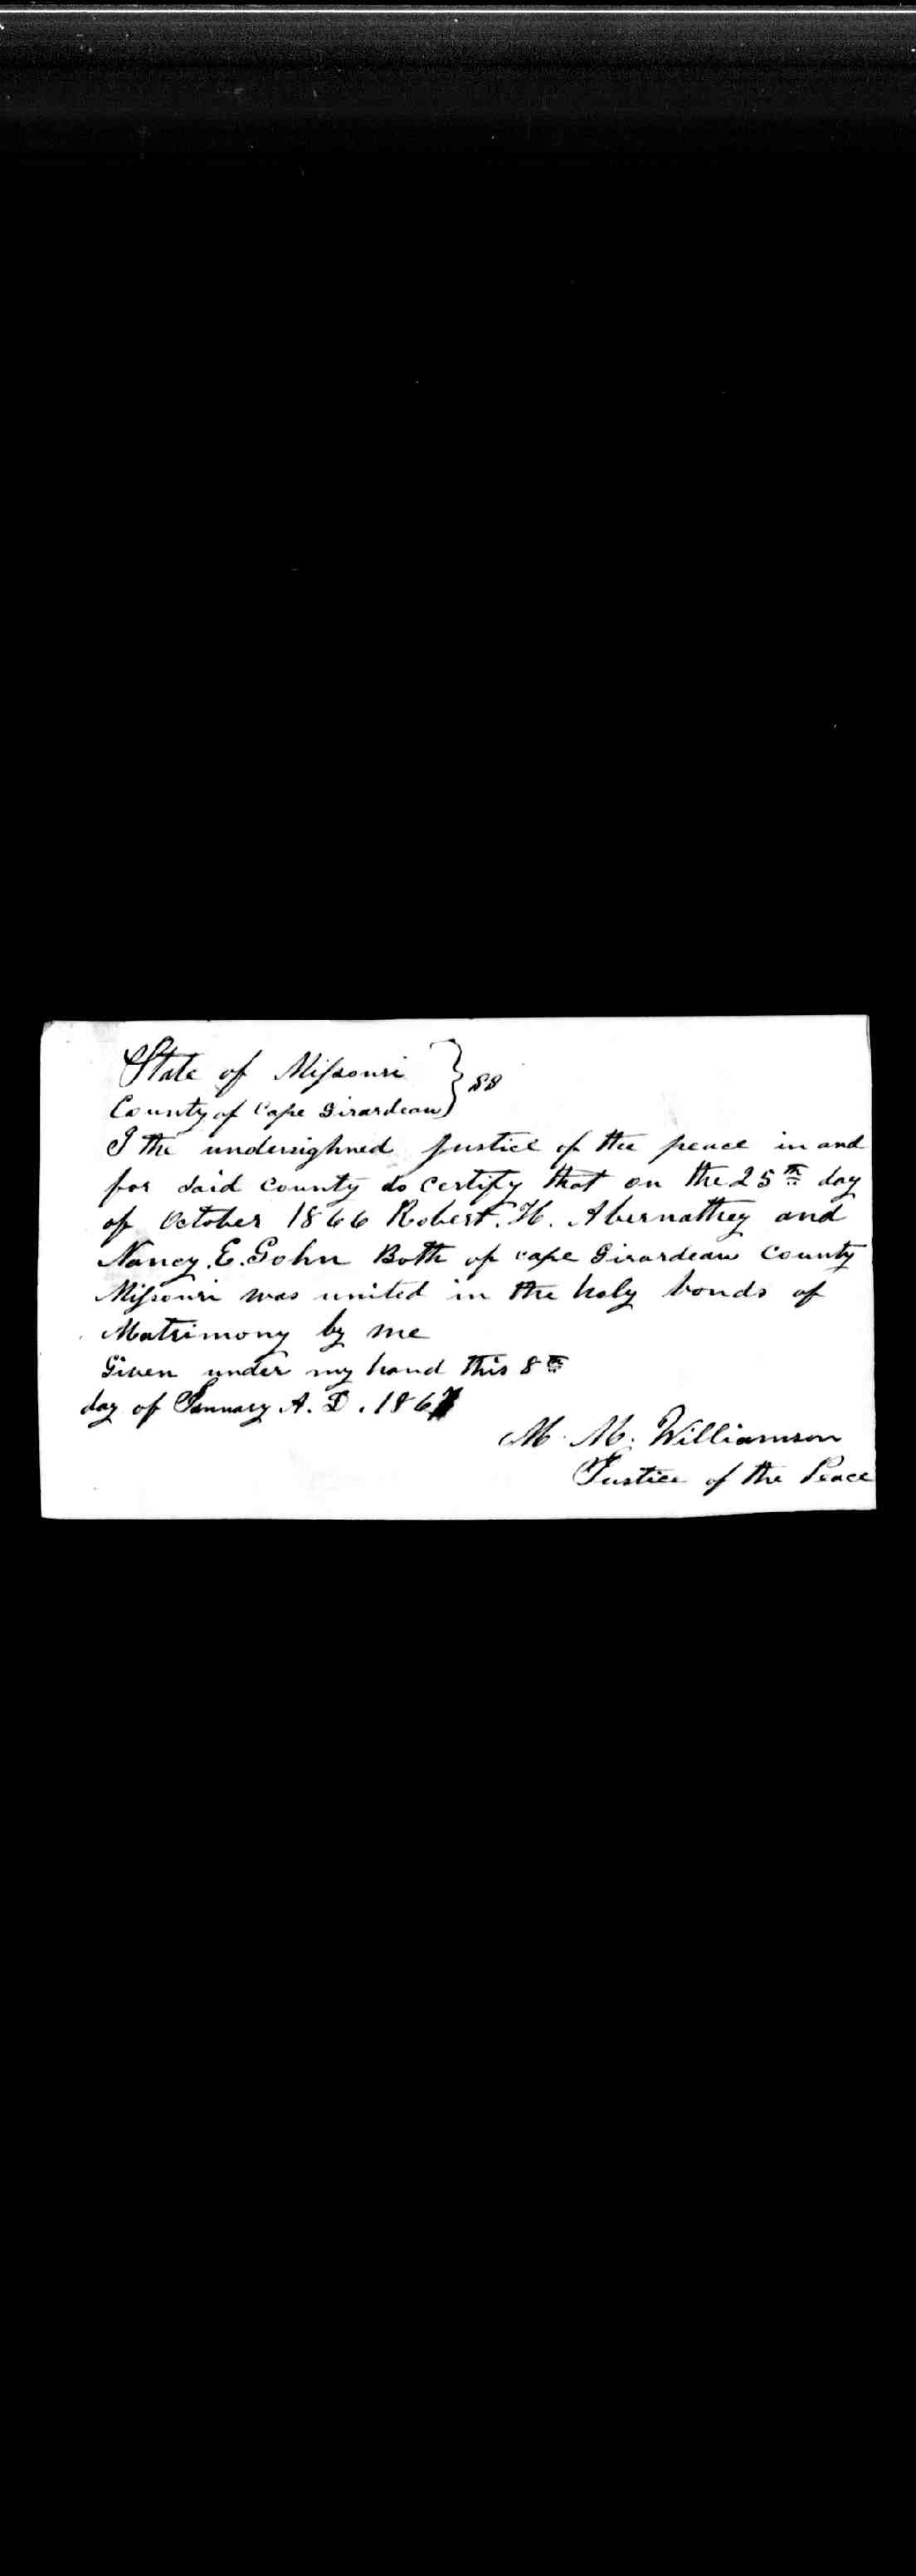 State of Missouri } SS
County of Cape Girardeau
I the undersighned Justice of the peace in and
for said county do certify that on the 25th day
of October 1866 Robert. H. Abernathey and
Nancy. E. Gohn Both of cape Girardeau County
Missouri was united in the holy bonds of
Matrimony by me
Given under my hand this 8th
day of January A. D. 1867
M. M. Williamson
Justice of the Peace